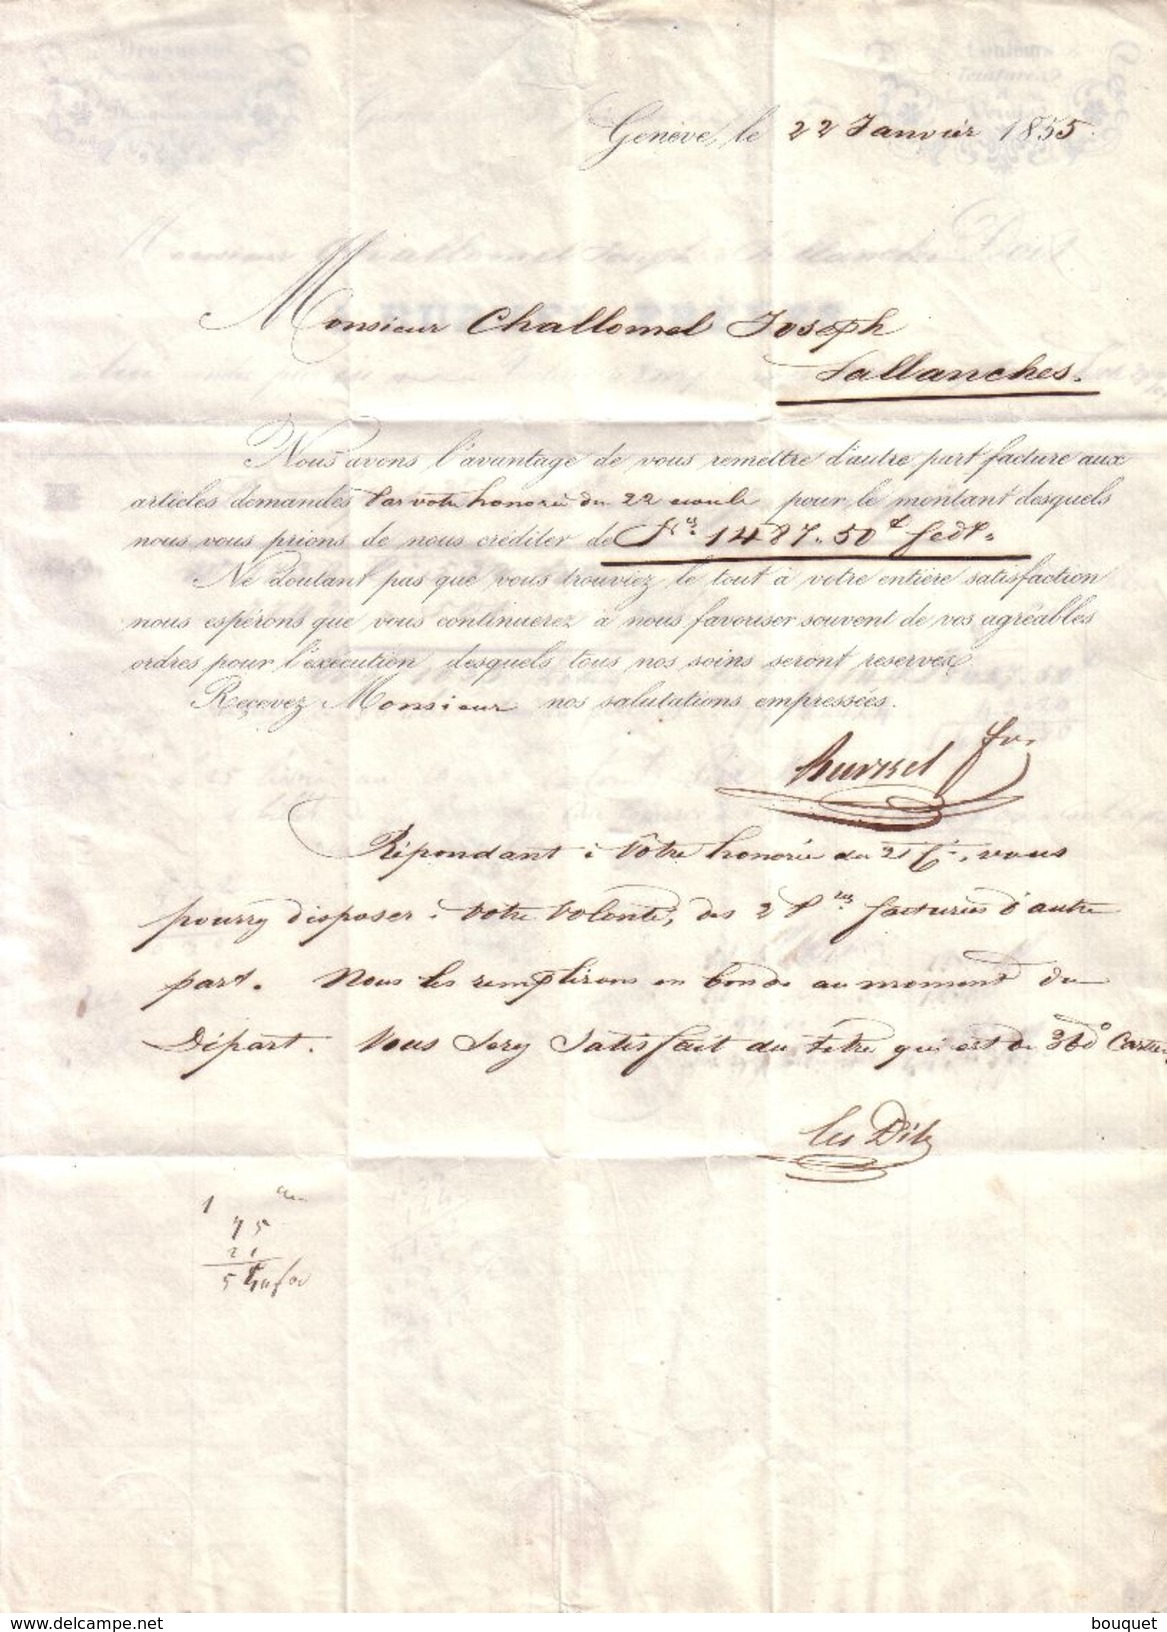 Genève, le 22 Janvier 1855.
Monsieur Challomel Joseph
Sallanches.
Nous avons l'avantage de vous remettre d'autre part facture aux
articles demandés Par votre honorée du 22 pour le montant desquels
nous vous prions de nous créditer de Frs. 1487.50
Ne doutant pas que vous trouviez le tout à votre entière satisfaction
nous espérons que vous continuerez à nous favoriser souvent de vos agréables
ordres pour l'exécution desquels tous nos soins seront reservés.
Recevez Monsieur nos salutations empressées.
Répondant à Votre honorée du 21 Ct, vous
pourry disposer à Votre Volonté, des 2 facturées d'autre
part. Nous les remplirons en bonde au moment du
Départ. Vous Sery Satisfait du titre qui est de 360°
les Dits
1
75
21
5
delcampe.net
bouquet